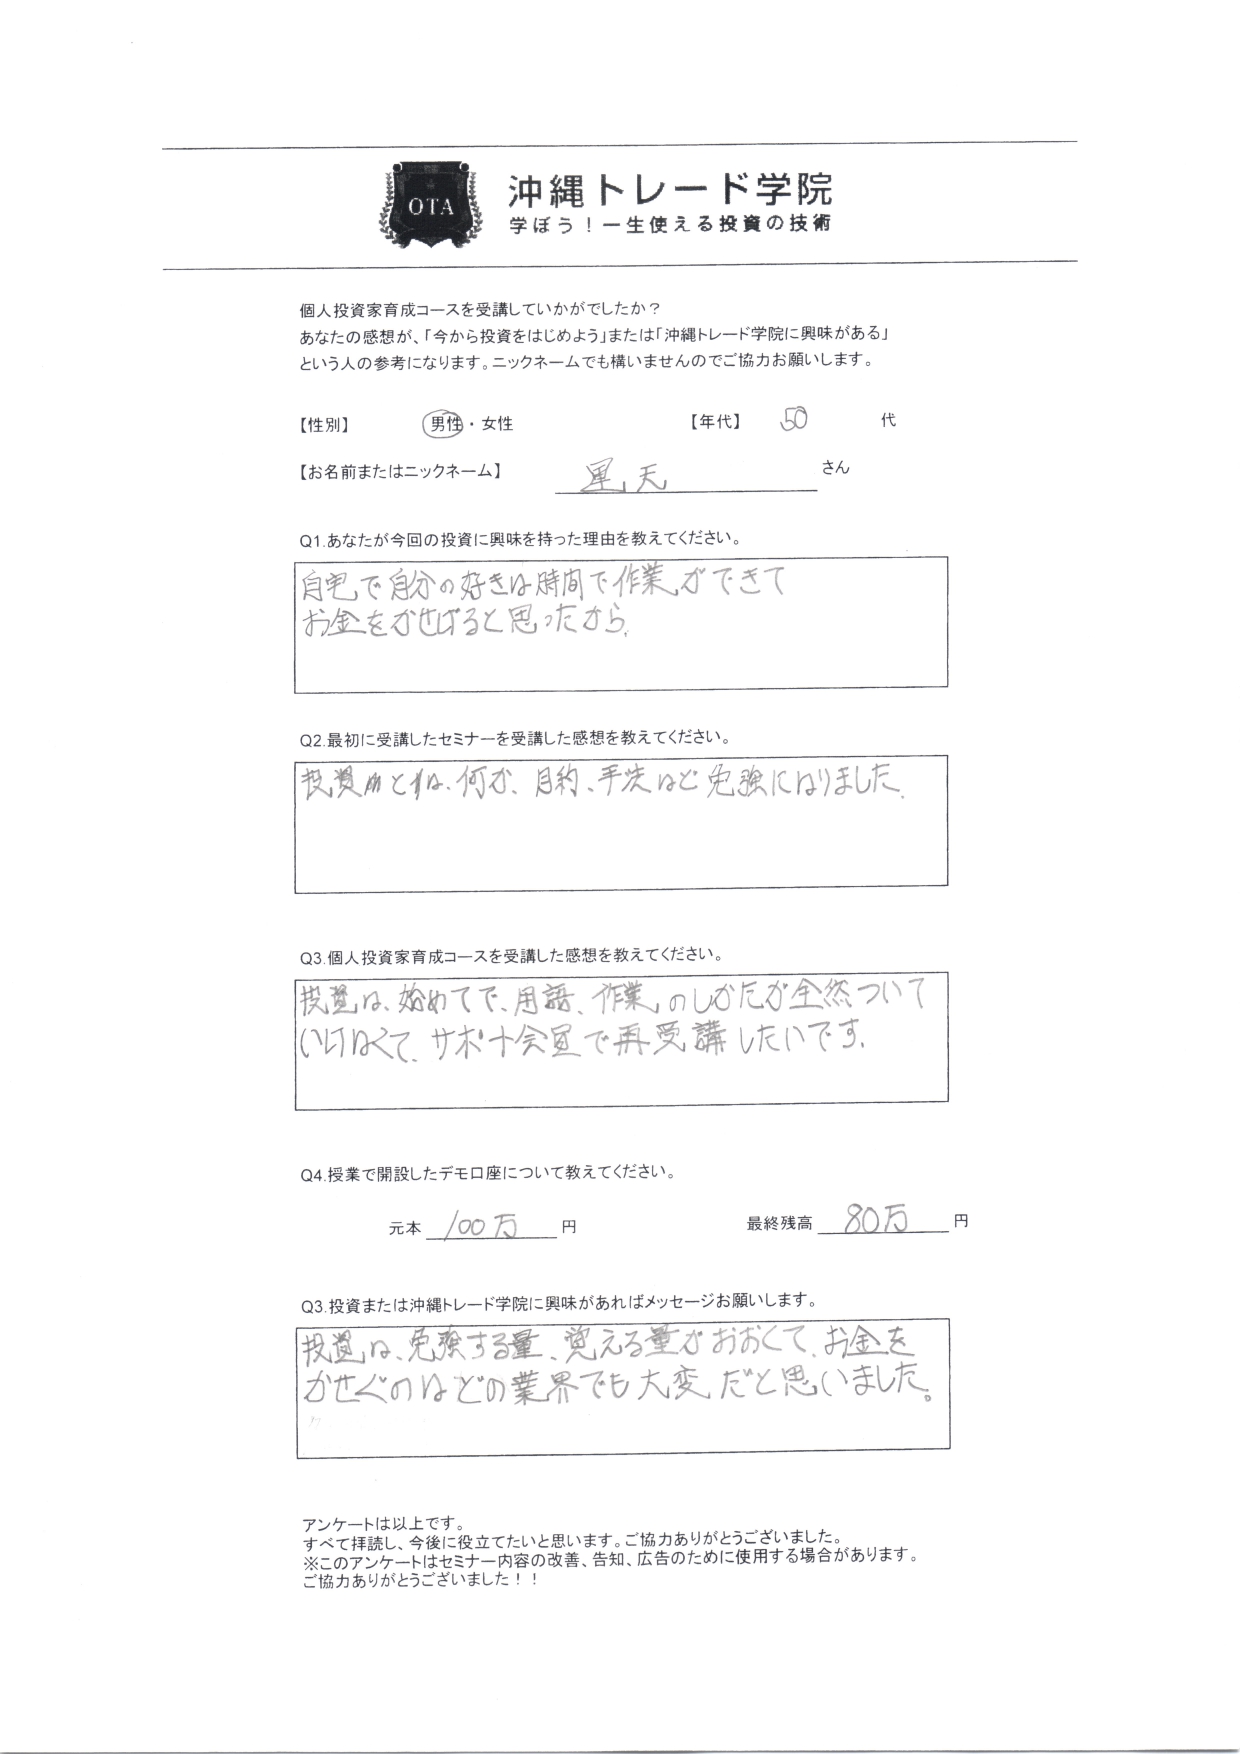 OTA
沖縄トレード学院
学ぼう！一生使える投資の技術
個人投資家育成コースを受講していかがでしたか？
あなたの感想が、「今から投資をはじめよう」または「沖縄トレード学院に興味がある」
という人の参考になります。ニックネームでも構いませんのでご協力お願いします。
【性別】 男性・女性 【年代】 50 代
【お名前またはニックネーム】 天 さん
Q1.あなたが今回の投資に興味を持った理由を教えてください。
自宅で自分の好きな時間で作業ができて
お金をかせげると思ったから.
Q2.最初に受講したセミナーを受講した感想を教えてください。
投資 とは、何か、目的、手法など勉強になりました.
Q3.個人投資家育成コースを受講した感想を教えてください。
投資は、始めてで、用語、作業のしかたが全然ついて
いけなくて、サポート会員で再受講したいです.
Q4.授業で開設したデモ口座について教えてください。
元本 100万 円 最終残高 80万 円
Q3.投資または沖縄トレード学院に興味があればメッセージお願いします。
投資は、勉強する量、覚える量がおおくて、お金を
かせぐのはどの業界でも大変だと思いました。
アンケートは以上です。
すべて拝読し、今後に役立てたいと思います。ご協力ありがとうございました。
※このアンケートはセミナー内容の改善、告知、広告のために使用する場合があります。
ご協力ありがとうございました！！